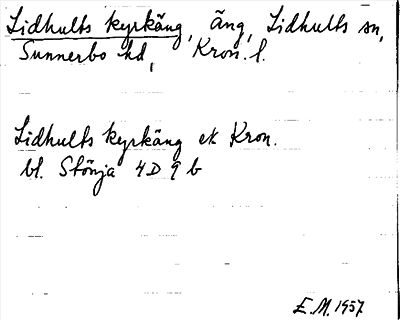 Lidhults kyrkäng, äng, Lidhults sn,
Sunnerbo hd, Kron. l.
Lidhults kyrkäng ek Kron.
bl. Stönja 4D 9 b
E.M. 1957